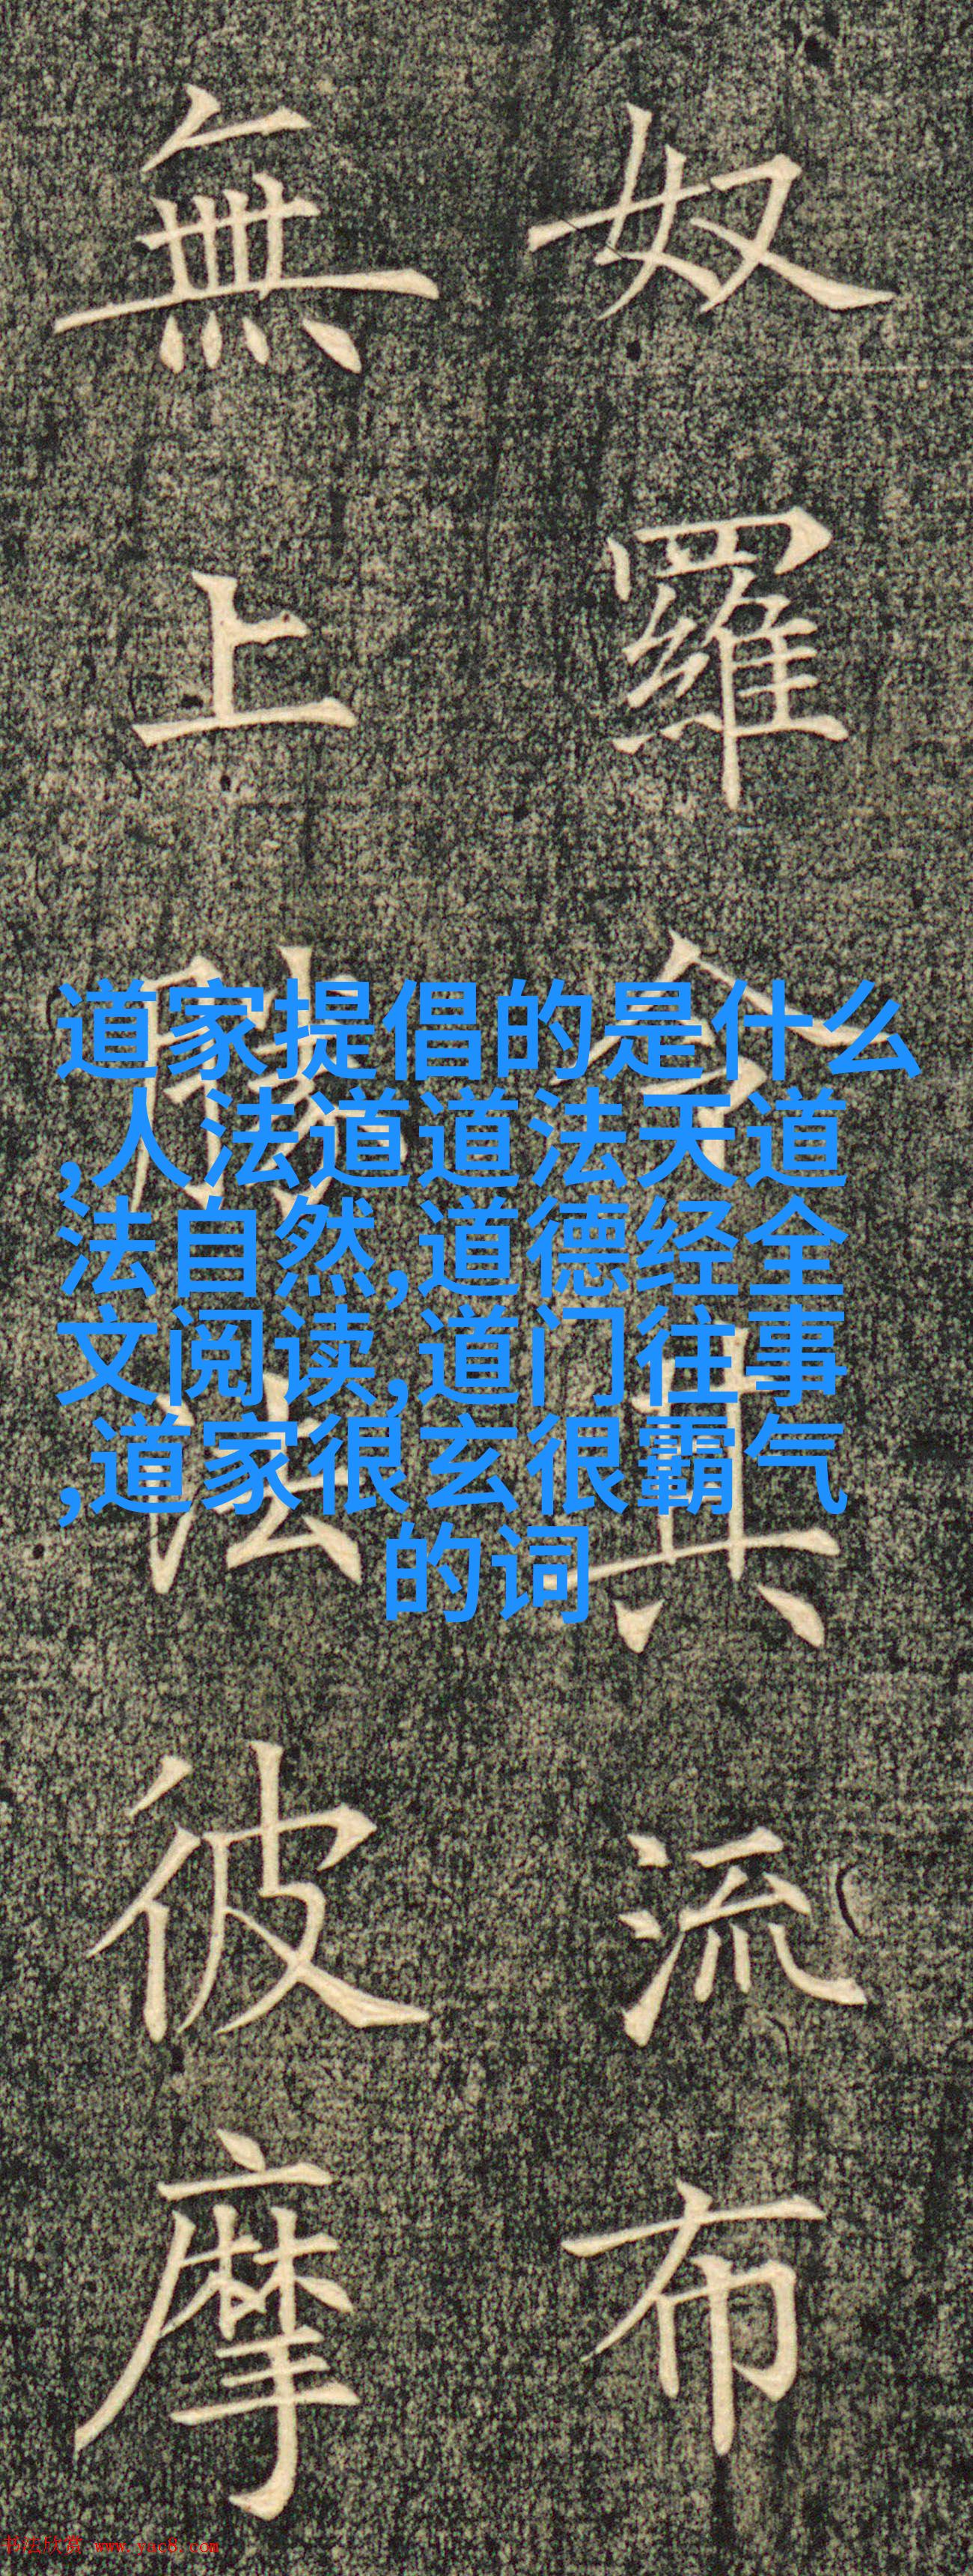 無上勝法彼摩
奴羅令其流布
道家提倡的是什么
,人法道道法天道
法自然,道德经全
文阅读,道门往事
,道家很玄很霸气
的词
书法欣赏 www.yac8.com